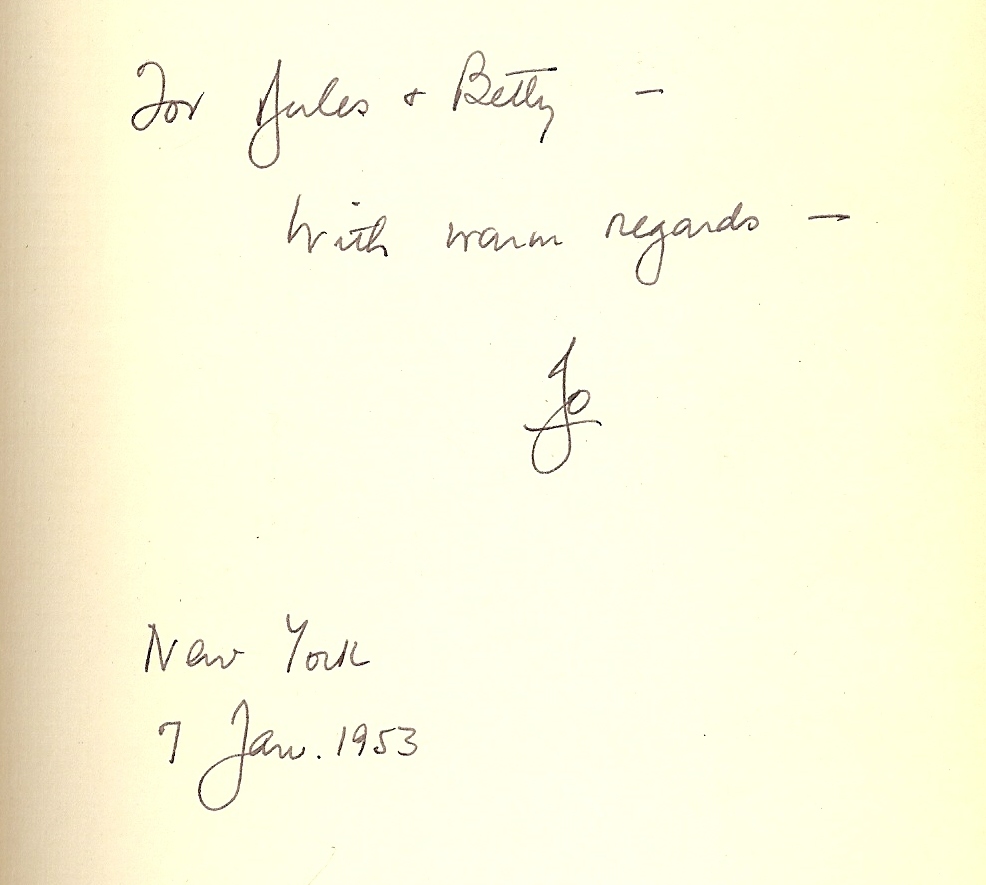 For Jules + Betty —
With warm regards —
Jo
New York
7 Jan. 1953